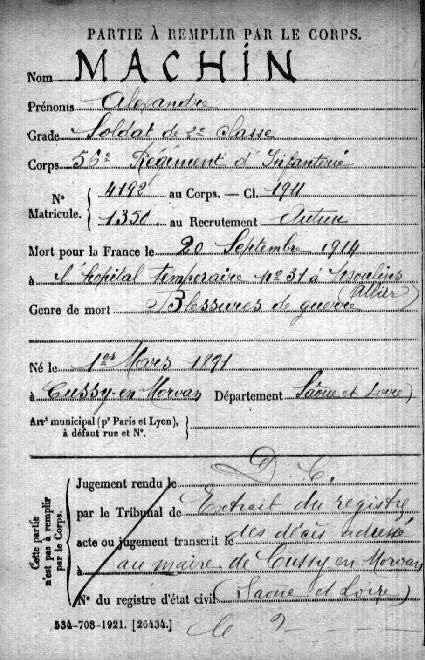 PARTIE À REMPLIR PAR LE CORPS.
Nom MACHIN
Prénoms Alexandre
Grade Soldat de 2e classe
Corps 56e Régiment d'Infanterie
N° Matricule. 4192 au Corps. — Cl. 1911
1350 au Recrutement Autun
Mort pour la France le 20 Septembre 1914
à l'hôpital temporaire N° 31 à Moulins
(Allier)
Genre de mort Blessures de guerre
Né le 1er Mars 1891
à Cussy-en-Morvan Département Saône et Loire
Arrt municipal (pr Paris et Lyon),
à défaut rue et N°.
Cette partie n'est pas à remplir par le Corps.
D. C.
Jugement rendu le
par le Tribunal de Extrait du registre
acte ou jugement transcrit le des décès adressé
à au maire de Cussy en Morvan
N° du registre d'état civil (Saône et Loire)
le
534-708-1921. [26434.]